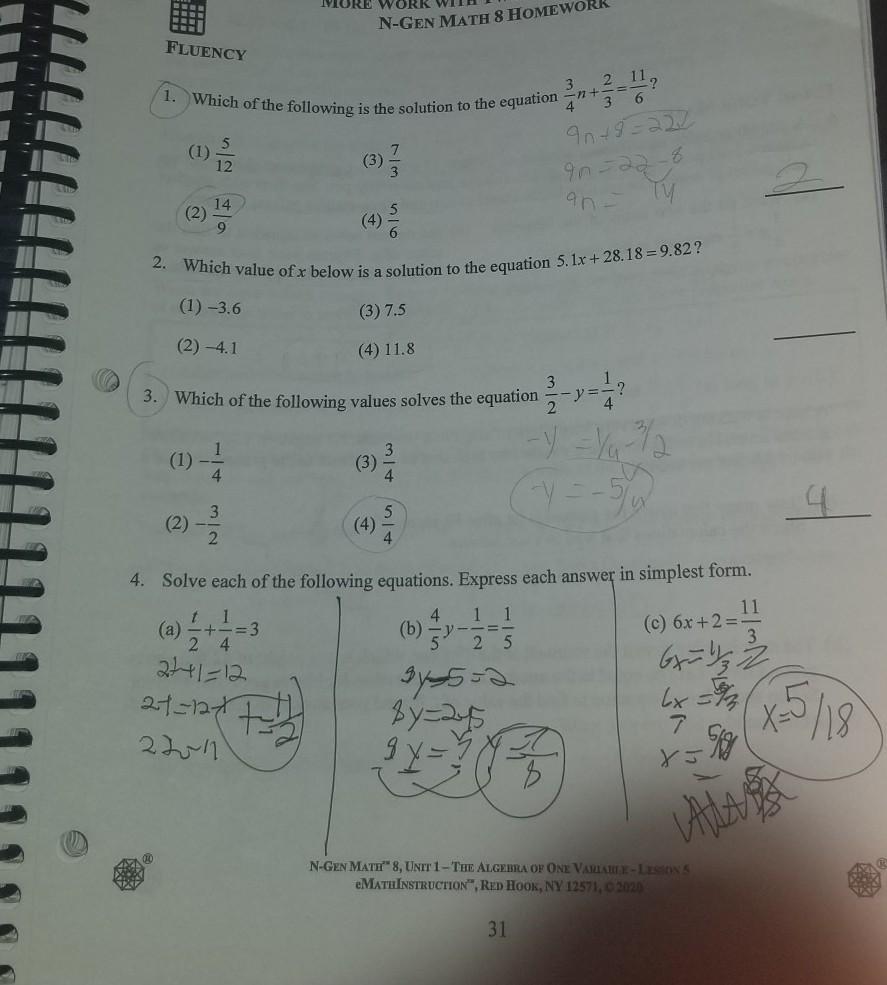 MORE WORK WITH
N-GEN MATH 8 HOMEWORK
FLUENCY
1. Which of the following is the solution to the equation 3/4 n + 2/3 = 11/6 ?
9n+8=22
(1) 5/12 (3) 7/3
9n=22-8
2
9n= 14
(2) 14/9 (4) 5/6
2. Which value of x below is a solution to the equation 5.1x + 28.18 = 9.82 ?
(1) –3.6 (3) 7.5
(2) –4.1 (4) 11.8
3. Which of the following values solves the equation 3/2 – y = 1/4 ?
-y = 1/4 - 3/2
(1) – 1/4 (3) 3/4
-y = -5/4
4
(2) – 3/2 (4) 5/4
4. Solve each of the following equations. Express each answer in simplest form.
(a) t/2 + 1/4 = 3 (b) 4/5 y – 1/2 = 1/5 (c) 6x + 2 = 11/3
2t+1=12
8y-5=2
6x=11/3-2
2t=12-1
8y=2+5
6x=5/3
t=11/2
8y=7
y=7/8
x=5/18
x=5/18
N-GEN MATH™ 8, UNIT 1 – THE ALGEBRA OF ONE VARIABLE – LESSON 5
eMATHINSTRUCTION™, RED HOOK, NY 12571, © 2020
31